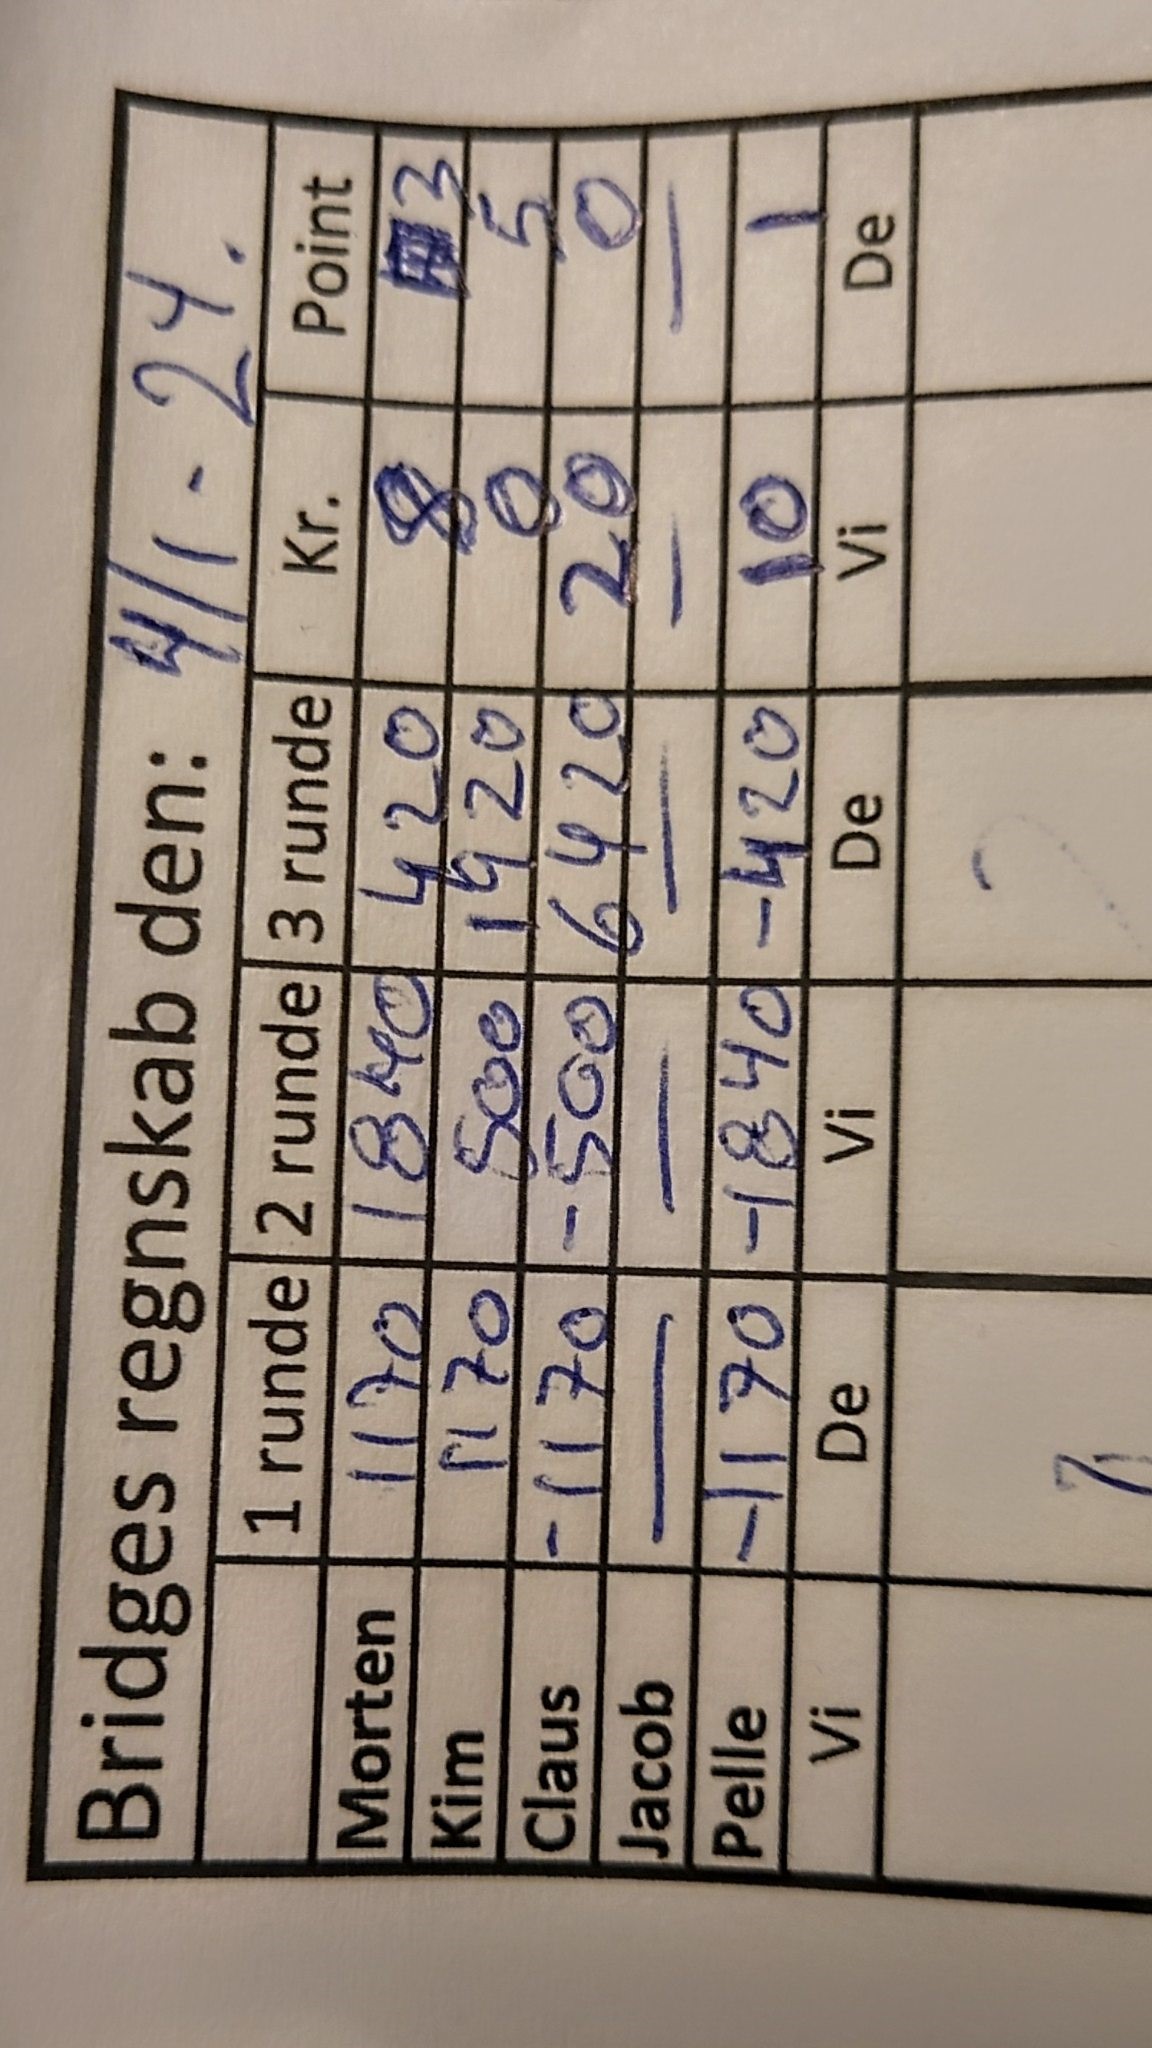 Bridges regnskab den: 4/1-24.
1 runde 2 runde 3 runde Kr. Point
Morten 1170 1840 420 8 3
Kim 1170 500 1920 0 5
Claus -1170 -500 6420 20 0
Jacob — — — — —
Pelle -1170 -1840 -420 10 1
Vi De Vi De Vi De